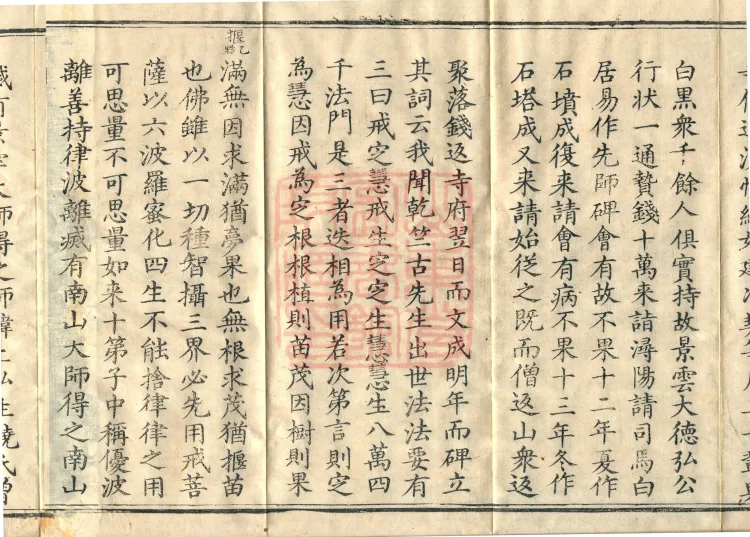 白黑衆千餘人俱實持故景雲大德弘公
行状一通贄錢十萬来請潯陽請司馬白
居易作先師碑會有故不果十二年夏作
石墳成復来請會有病不果十三年冬作
石塔成又来請始從之既而僧返山衆返
聚落錢返寺府翌日而文成明年而碑立
其詞云我聞乾竺古先生出世法法要有
三曰戒定慧戒生定定生慧慧生八萬四
千法門是三者迭相為用若次第言則定
為慧因戒為定根根植則苗茂因樹則果
揠乙
滿無因求滿猶夢果也無根求茂猶揠苗
也佛雖以一切種智攝三界必先用戒菩
薩以六波羅蜜化四生不能捨律律之用
可思量不可思量如来十第子中稱優波
離善持律波離滅有南山大師得之南山
滅有景雲大師得之師諱上弘生饒氏曽